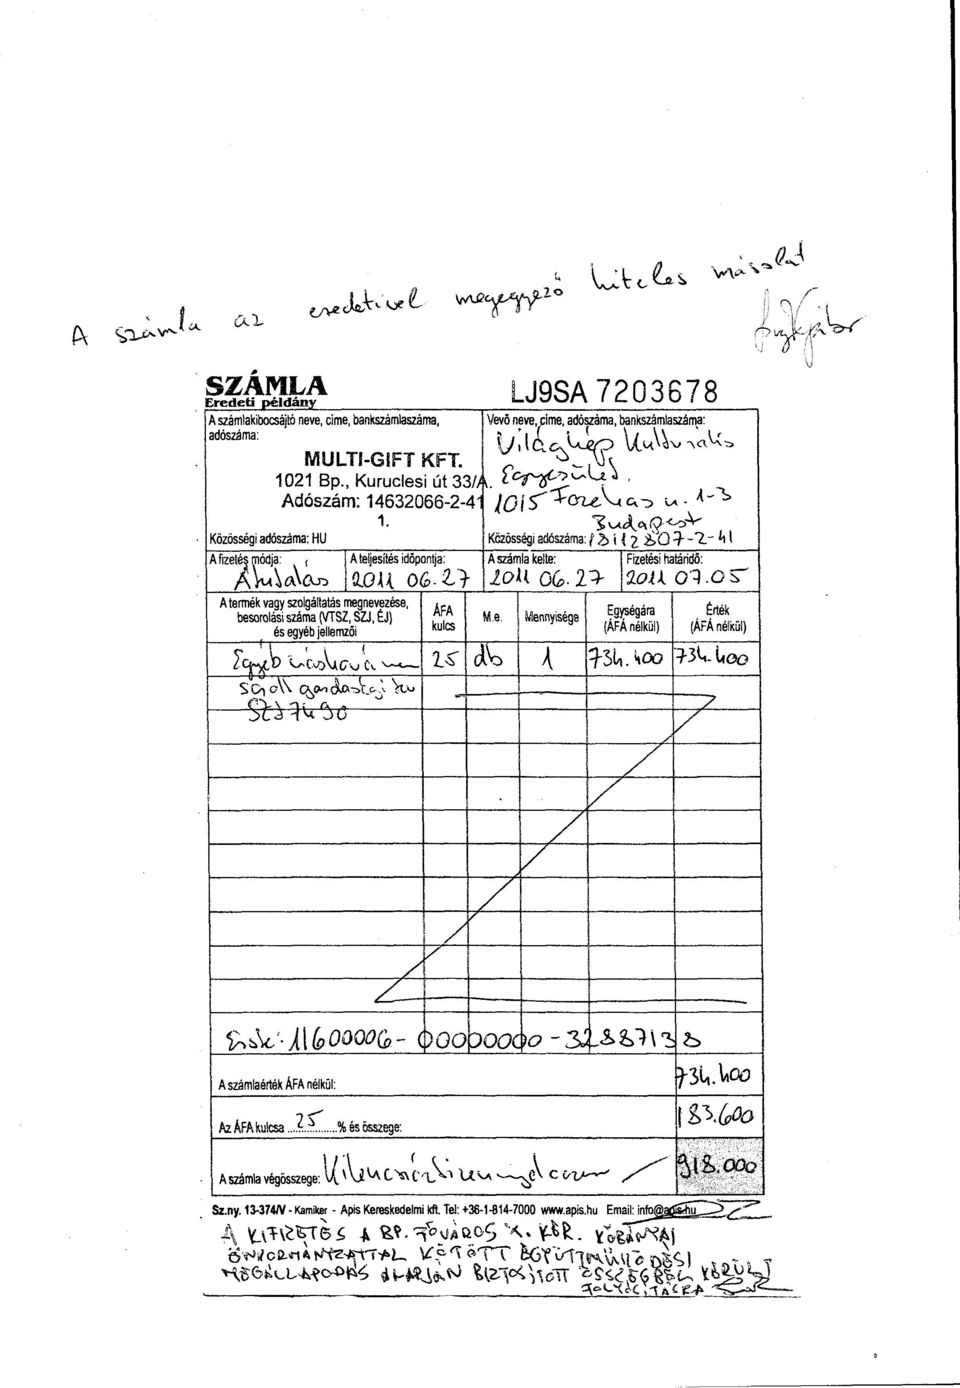 A számla az eredetivel megegyező hiteles másolat
SZÁMLA
Eredeti példány
LJ9SA 7203678
A számlakibocsájtó neve, címe, bankszámlaszáma,
adószáma:
MULTI-GIFT KFT.
1021 Bp., Kuruclesi út 33/A.
Adószám: 14632066-2-41
1.
Közösségi adószáma: HU
Vevő neve, címe, adószáma, bankszámlaszáma:
Világkép Kulturális
Egyesület.
1015 Toldy u. 1-3
Budapest
Közösségi adószáma: 18112807-2-41
A fizetés módja:
Átutalás
A teljesítés időpontja:
2011 06.27
A számla kelte:
2011 06.27
Fizetési határidő:
2011 07.05
A termék vagy szolgáltatás megnevezése,
besorolási száma (VTSZ, SZJ, ÉJ)
és egyéb jellemzői
ÁFA
kulcs
M.e.
Mennyisége
Egységára
(ÁFÁ nélkül)
Érték
(ÁFÁ nélkül)
Egyéb máshová nem 25 db 1 734.400 734.400
sorolt gazdasági szolg.
SZJ 7490
11600006-00000000-32887138
A számlaérték ÁFA nélkül: 734.400
Az ÁFA kulcsa 25 % és összege: 183.600
A számla végösszege: Kilencszáztizennyolcezer 918.000
Sz.ny. 13-374/V - Kamiker - Apis Kereskedelmi kft. Tel: +36-1-814-7000 www.apis.hu Email: info@apis.hu
A KIFIZETÉS A BP. FŐVÁROS X. KER. KŐBÁNYAI
ÖNKORMÁNYZATTAL KÖTÖTT EGYÜTTMŰKÖDÉSI
MEGÁLLAPODÁS ALAPJÁN BIZTOSÍTOTT ÖSSZEGBŐL KERÜLT
FOLYÓSÍTÁSRA